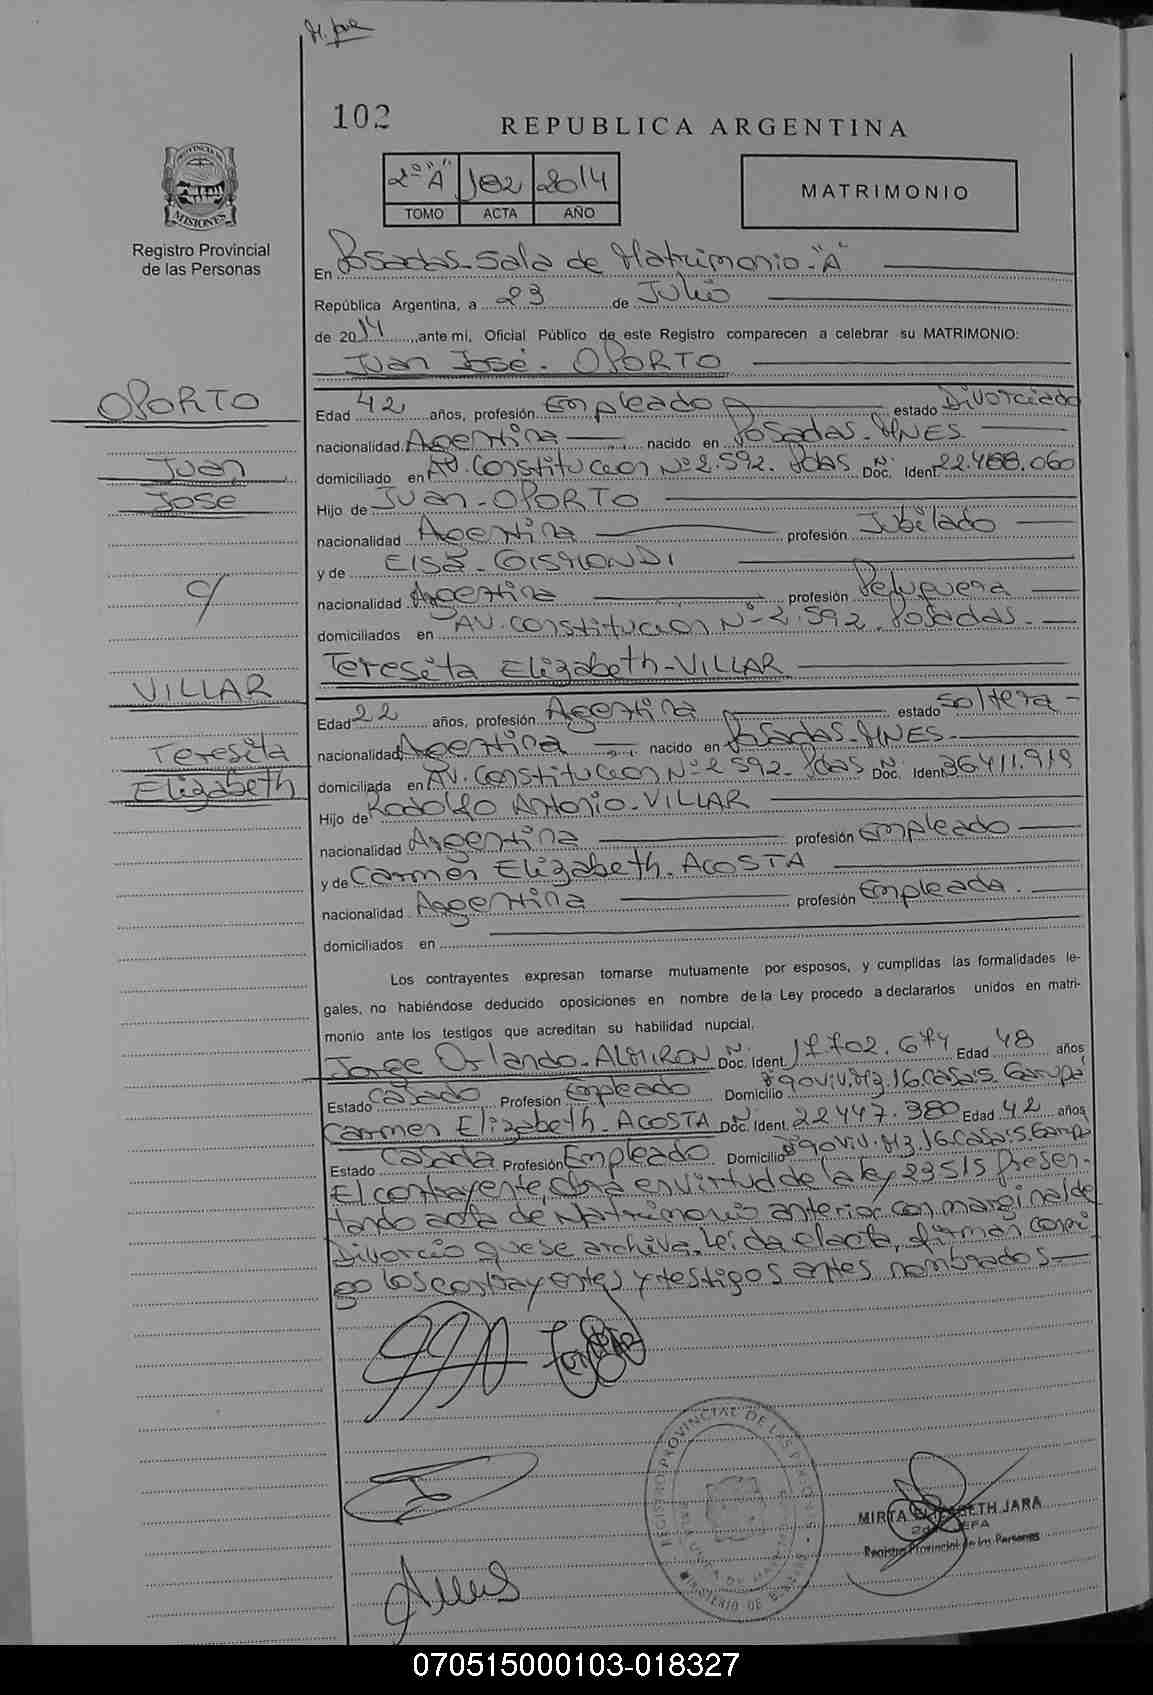 102
REPUBLICA ARGENTINA
PROVINCIA
MISIONES
Registro Provincial
de las Personas
2º "A" 102 2014
TOMO ACTA AÑO
MATRIMONIO
En Posadas-Sala de Matrimonio-"A"
República Argentina, a 23 de Julio
de 2014, ante mi, Oficial Público de este Registro comparecen a celebrar su MATRIMONIO:
Juan José. OPORTO
OPORTO
Juan
José
c/
VILLAR
Teresita
Elizabeth
Edad 42 años, profesión Empleado estado Divorciado
nacionalidad Argentina nacido en Posadas-MNES.
domiciliado en AV. Constitucion Nº 2.592. Pdas Nº Doc. Ident 22.488.060
Hijo de Juan-OPORTO
nacionalidad Argentina profesión Jubilado
y de Elsa-GISMONDI
nacionalidad Argentina profesión Peluquera
domiciliados en AV. Constitucion Nº 2.592. Posadas.
Teresita Elizabeth-VILLAR
Edad 22 años, profesión Argentina estado Soltera-
nacionalidad Argentina nacido en Posadas-MNES.
domiciliada en AV. Constitución Nº 2592- Pdas Nº Doc. Ident 36411.918
Hijo de Rodolfo Antonio-VILLAR
nacionalidad Argentina profesión Empleado
y de Carmen Elizabeth. ACOSTA
nacionalidad Argentina profesión Empleada.
domiciliados en
Los contrayentes expresan tomarse mutuamente por esposos, y cumplidas las formalidades le-
gales, no habiéndose deducido oposiciones en nombre de la Ley procedo a declararlos unidos en matri-
monio ante los testigos que acreditan su habilidad nupcial,
Jorge Orlando-ALMIRON Nº Doc. Ident. 17.702.674 Edad 48 años
Estado Casado Profesión Empleado Domicilio 90 Viv. Mz. 16. Casa 5. Garupá
Carmen Elizabeth-ACOSTA Nº Doc. Ident. 22447.380 Edad 42 años
Estado Casada Profesión Empleado Domicilio 90 Viv. Mz. 16. Casa 5. Garupá
El contrayente, obra en virtud de la ley 23515 presen-
tando acta de Matrimonio anterior con marginal de
Divorcio que se archiva. Leída el acta, firman conmi
go los contrayentes y testigos antes nombrados
REGISTRO PROVINCIAL DE LAS PERSONAS
MINISTERIO DE
MIRTA ELIZABETH JARA
JEFA
Registro Provincial de las Personas
070515000103-018327